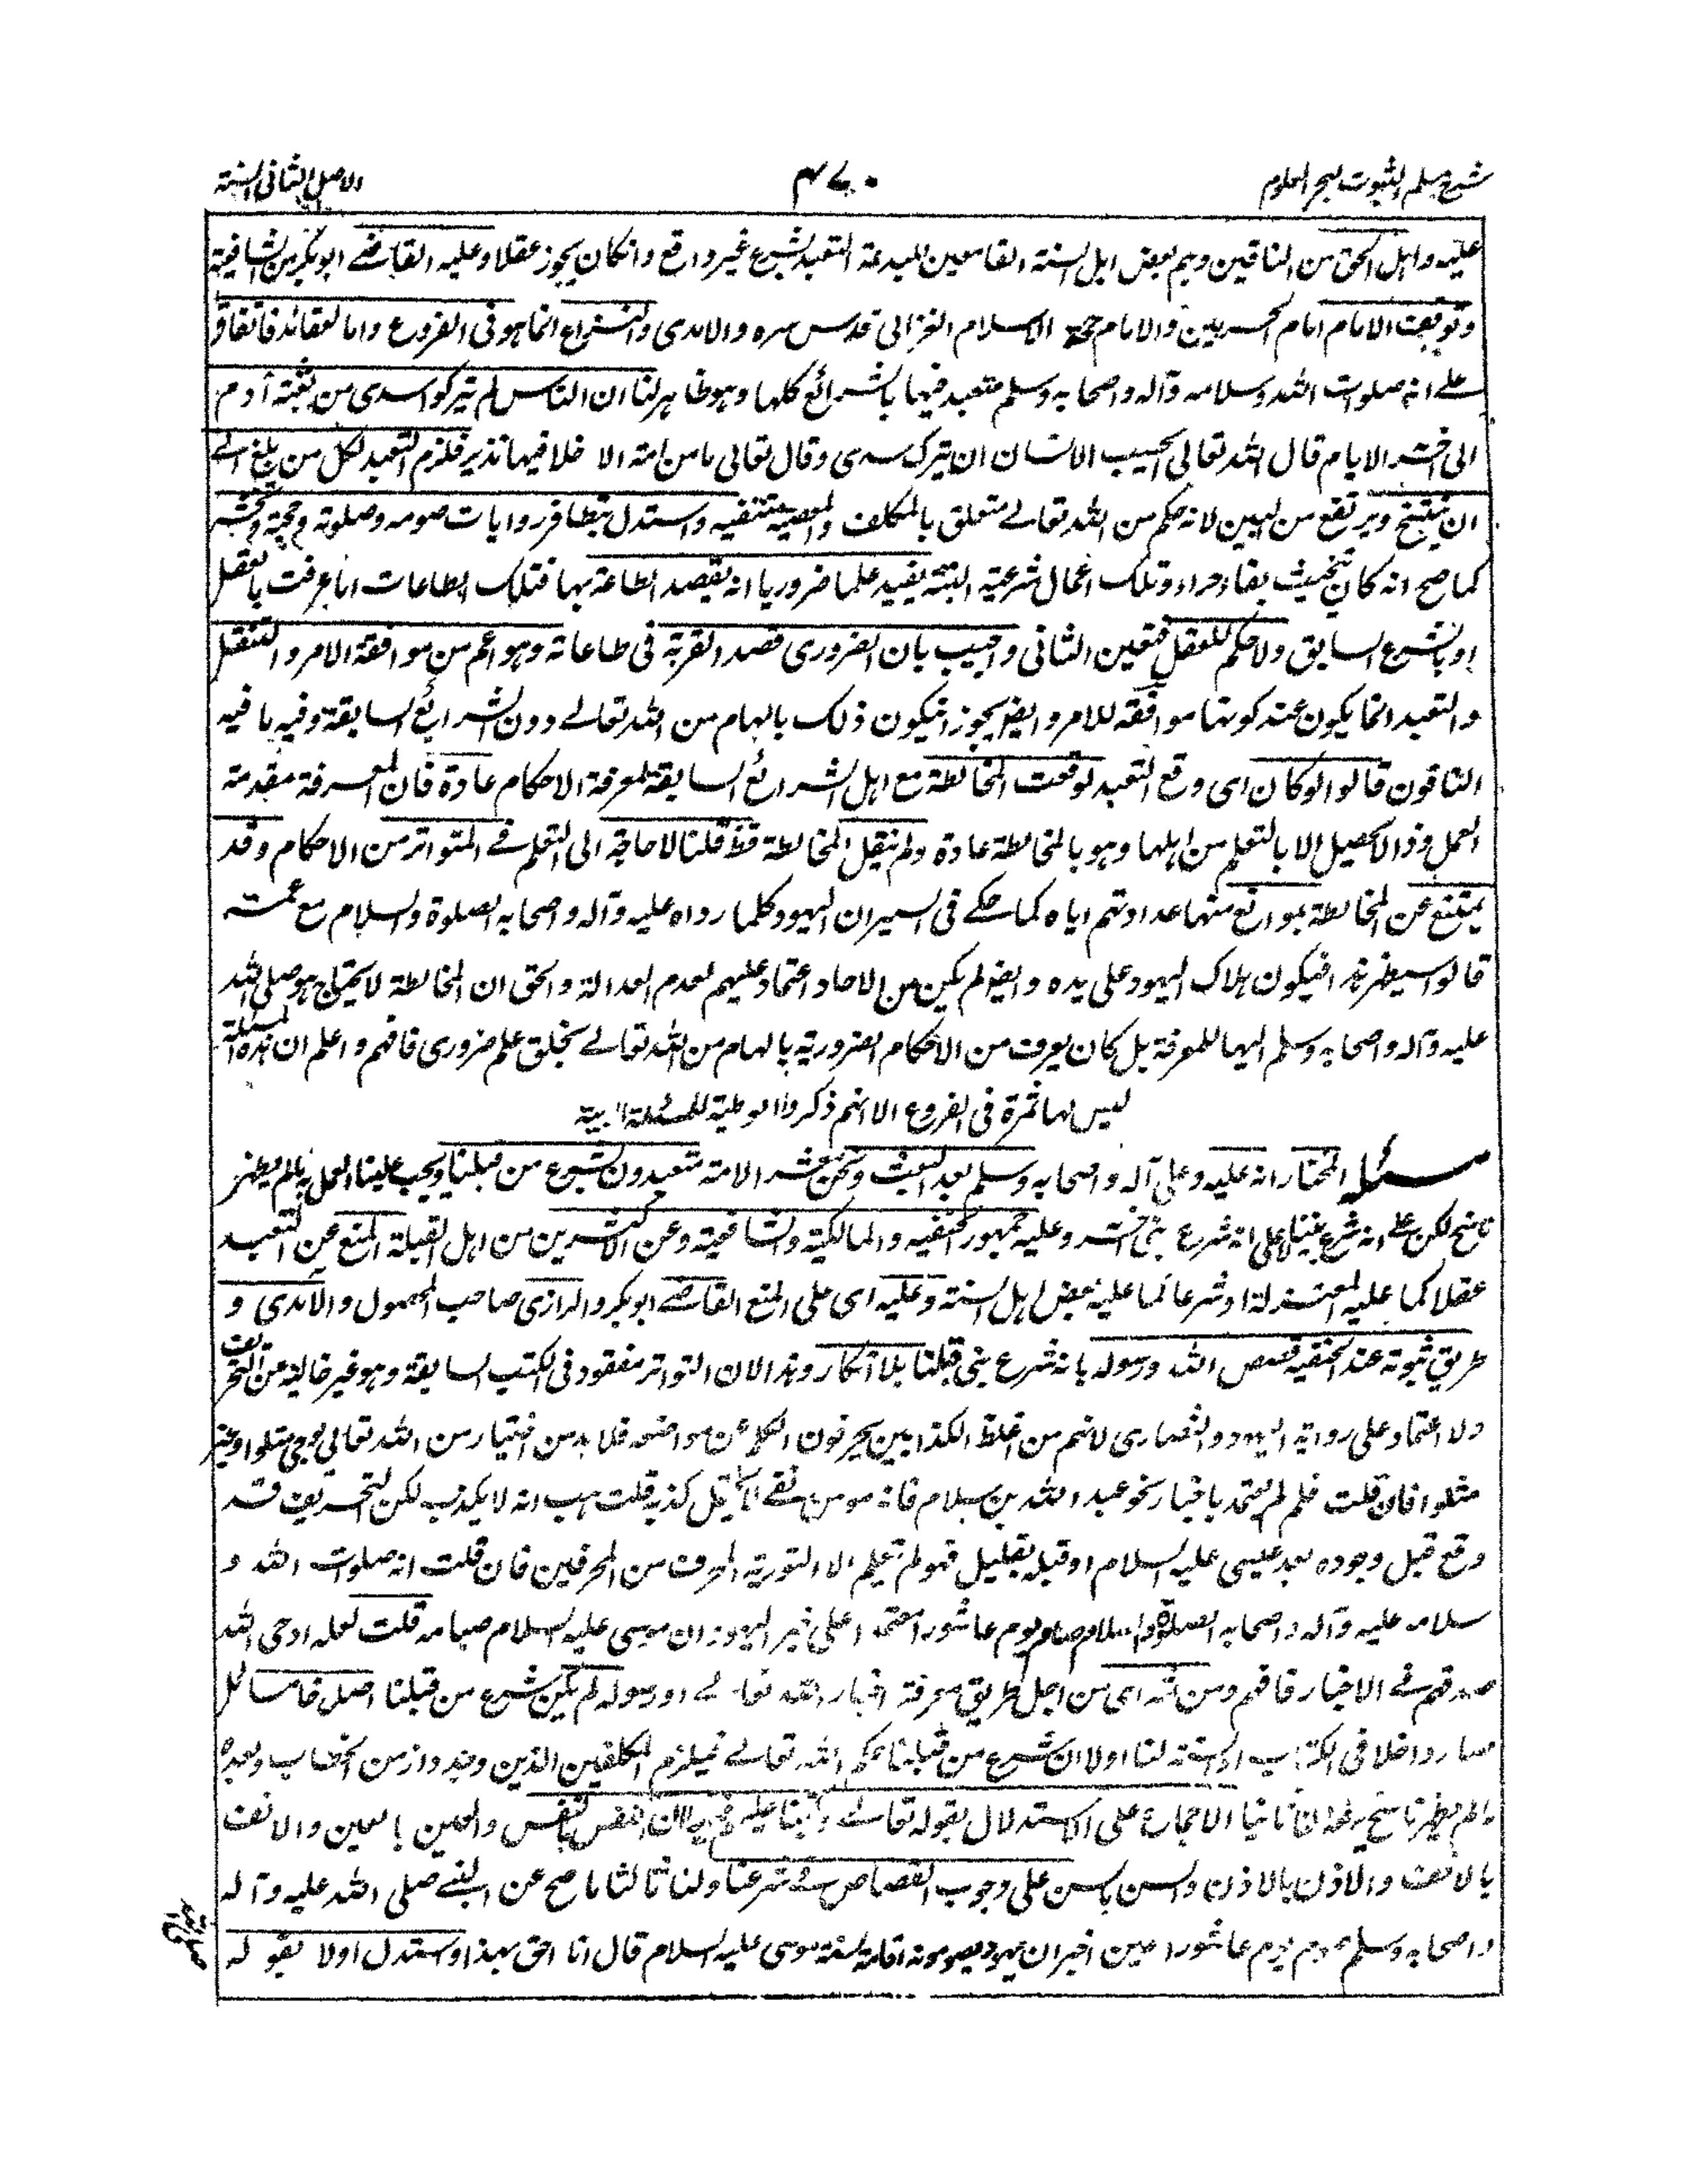 شرح مسلم الثبوت لبحر العلوم
٤٧٠
الاصل الثانى السنة
عليه واهل الحق من النافين وهم بعض اهل السنة القامعين للبدعة التعبد بشرع غير واقع وان كان يجوز عقلا وعليه القاضے ابو بكر من الشافعية
وتوقف الامام امام الحرمين والامام حجة الاسلام الغزالى قدس سره والآمدى والنزاع انما هو فى الفروع واما العقائد فاتفاق
علے انه صلوات الله وسلامه وآله واصحابه وسلم متعبد فيها بالشرائع كلها وهو ظاهر لنا ان الناس لم يتركوا سدى من بعثة آدم
الى آخر الايام قال الله تعالى ايحسب الانسان ان يترك سدى وقال تعالى ما من امة الا خلا فيها نذير فلزم التعبد لكل من بلغ الے
ان ينسخ ويرتفع من البين لانه حكم من الله تعالے متعلق بالمكلف والمعصية منتفية واستدل بتظافر روايات صومه وصلوته وحجته وتحنثه
كما صح انه كان يتحنث بغار حراء وتلك اعمال شرعية البتة يفيد علما ضروريا انه يقصد الطاعة بها فتلك الطاعات اما عرفت بالعقل
او بالشرع السابق ولا حكم للعقل فتعين الثانى واجيب بان الضرورى قصد القربة فى طاعاته وهو اعم من موافقة الامر والتنفل
والتعبد انما يكون عند كونها موافقة للامر وايضا يجوز ان يكون ذلك بالهام من الله تعالے دون الشرائع السابقة وفيه ما فيه
النافون قالوا لو كان اى وقع التعبد لوقعت المخالطة مع اهل الشرائع السابقة لمعرفة الاحكام عادة فان المعرفة مقدمة
العمل وذا لا يحصل الا بالتعلم من اهلها وهو بالمخالطة عادة ولم ينقل المخالطة قط قلنا لا حاجة الى التعلم فے المتواتر من الاحكام وقد
يمتنع عن المخالطة بموانع منها عداوتهم اياه كما حكے فى السير ان اليهود كلما رواه عليه وآله واصحابه الصلوة والسلام مع عمه
قالوا سيظهر نذرا فيكون هلاك اليهود على يده وايضا لم يكن من الآحاد اعتماد عليهم لعدم العدالة والحق ان المخالطة لا يحتاج هو صلى الله
عليه وآله واصحابه وسلم اليها للمعرفة بل كان يعرف من الاحكام الضرورية بالهام من الله تعالے بخلق علم ضرورى فافهم واعلم ان هذه المسئلة
ليس لها ثمرة فى الفروع الا انهم ذكروا توطية للمسئلة الآتية
مسئلة المختار انه عليه وعلى آله واصحابه وسلم بعد البعث ونحن معشر الامة متعبدون بشرع من قبلنا ويجب علينا العمل به ما لم يظهر
ناسخ لكن علے انه شرع نبينا لا على انه شرع نبى آخر وعليه جمهور الحنفية والمالكية والشافعية وعن الاكثرين من اهل القبلة المنع عن التعبد
عقلا كما عليه المعتزلة او شرعا كما عليه بعض اهل السنة وعليه اى على المنع القاضے ابو بكر والرازى صاحب المحصول والآمدى و
طريق ثبوته عند الحنفية قصص الله ورسوله بانه شرع نبى قبلنا بلا انكار وهذا لان التواتر مفقود فى الكتب السابقة وهو غير خالية عن التحريف
ولا اعتماد على رواية اليهود والنصارى لانهم من اغلظ الكذابين يحرفون الكلم عن مواضعه فلا بد من اخبار من الله تعالى بوحى متلو او غير
متلو فان قلت فلم لم يعتمد باخبار نحو عبد الله بن سلام فانه مومن تقے لا يحتمل كذبه قلت هب انه لا يكذب لكن التحريف قد
وقع قبل وجوده بعد عيسى عليه السلام او قبله بقليل فهو لم يعلم الا التورية المحرف من المحرفين فان قلت انه صلوات الله و
سلامه عليه وآله واصحابه الصلوة والسلام صام يوم عاشوراء معتمدا على خبر اليهود ان موسى عليه السلام صيامه قلت لعله اوحى الله
صدقهم فے الاخبار فافهم ومن ثمه اى من اجل طريق معرفة اخبار الله تعالے او رسوله لم يكن شرع من قبلنا اصلا خامسا بل
صار داخلا فى الكتاب والسنة لنا اولا ان شرع من قبلنا حكم الله تعالے فيلزم المكلفين الذين وجدوا زمن الخطاب وبعده
ما لم يظهر ناسخ ولنا ثانيا الاجماع على الاستدلال بقوله تعالے وكتبنا عليهم فيها ان النفس بالنفس والعين بالعين والانف
بالانف والاذن بالاذن والسن بالسن على وجوب القصاص فے شرعنا ولنا ثالثا ما صح عن النبے صلى الله عليه وآله
واصحابه وسلم صوم يوم عاشوراء حين اخبر ان يهود يصومونه اقامة لسنة موسى عليه السلام قال انا احق بهذا واستدل اولا بقوله